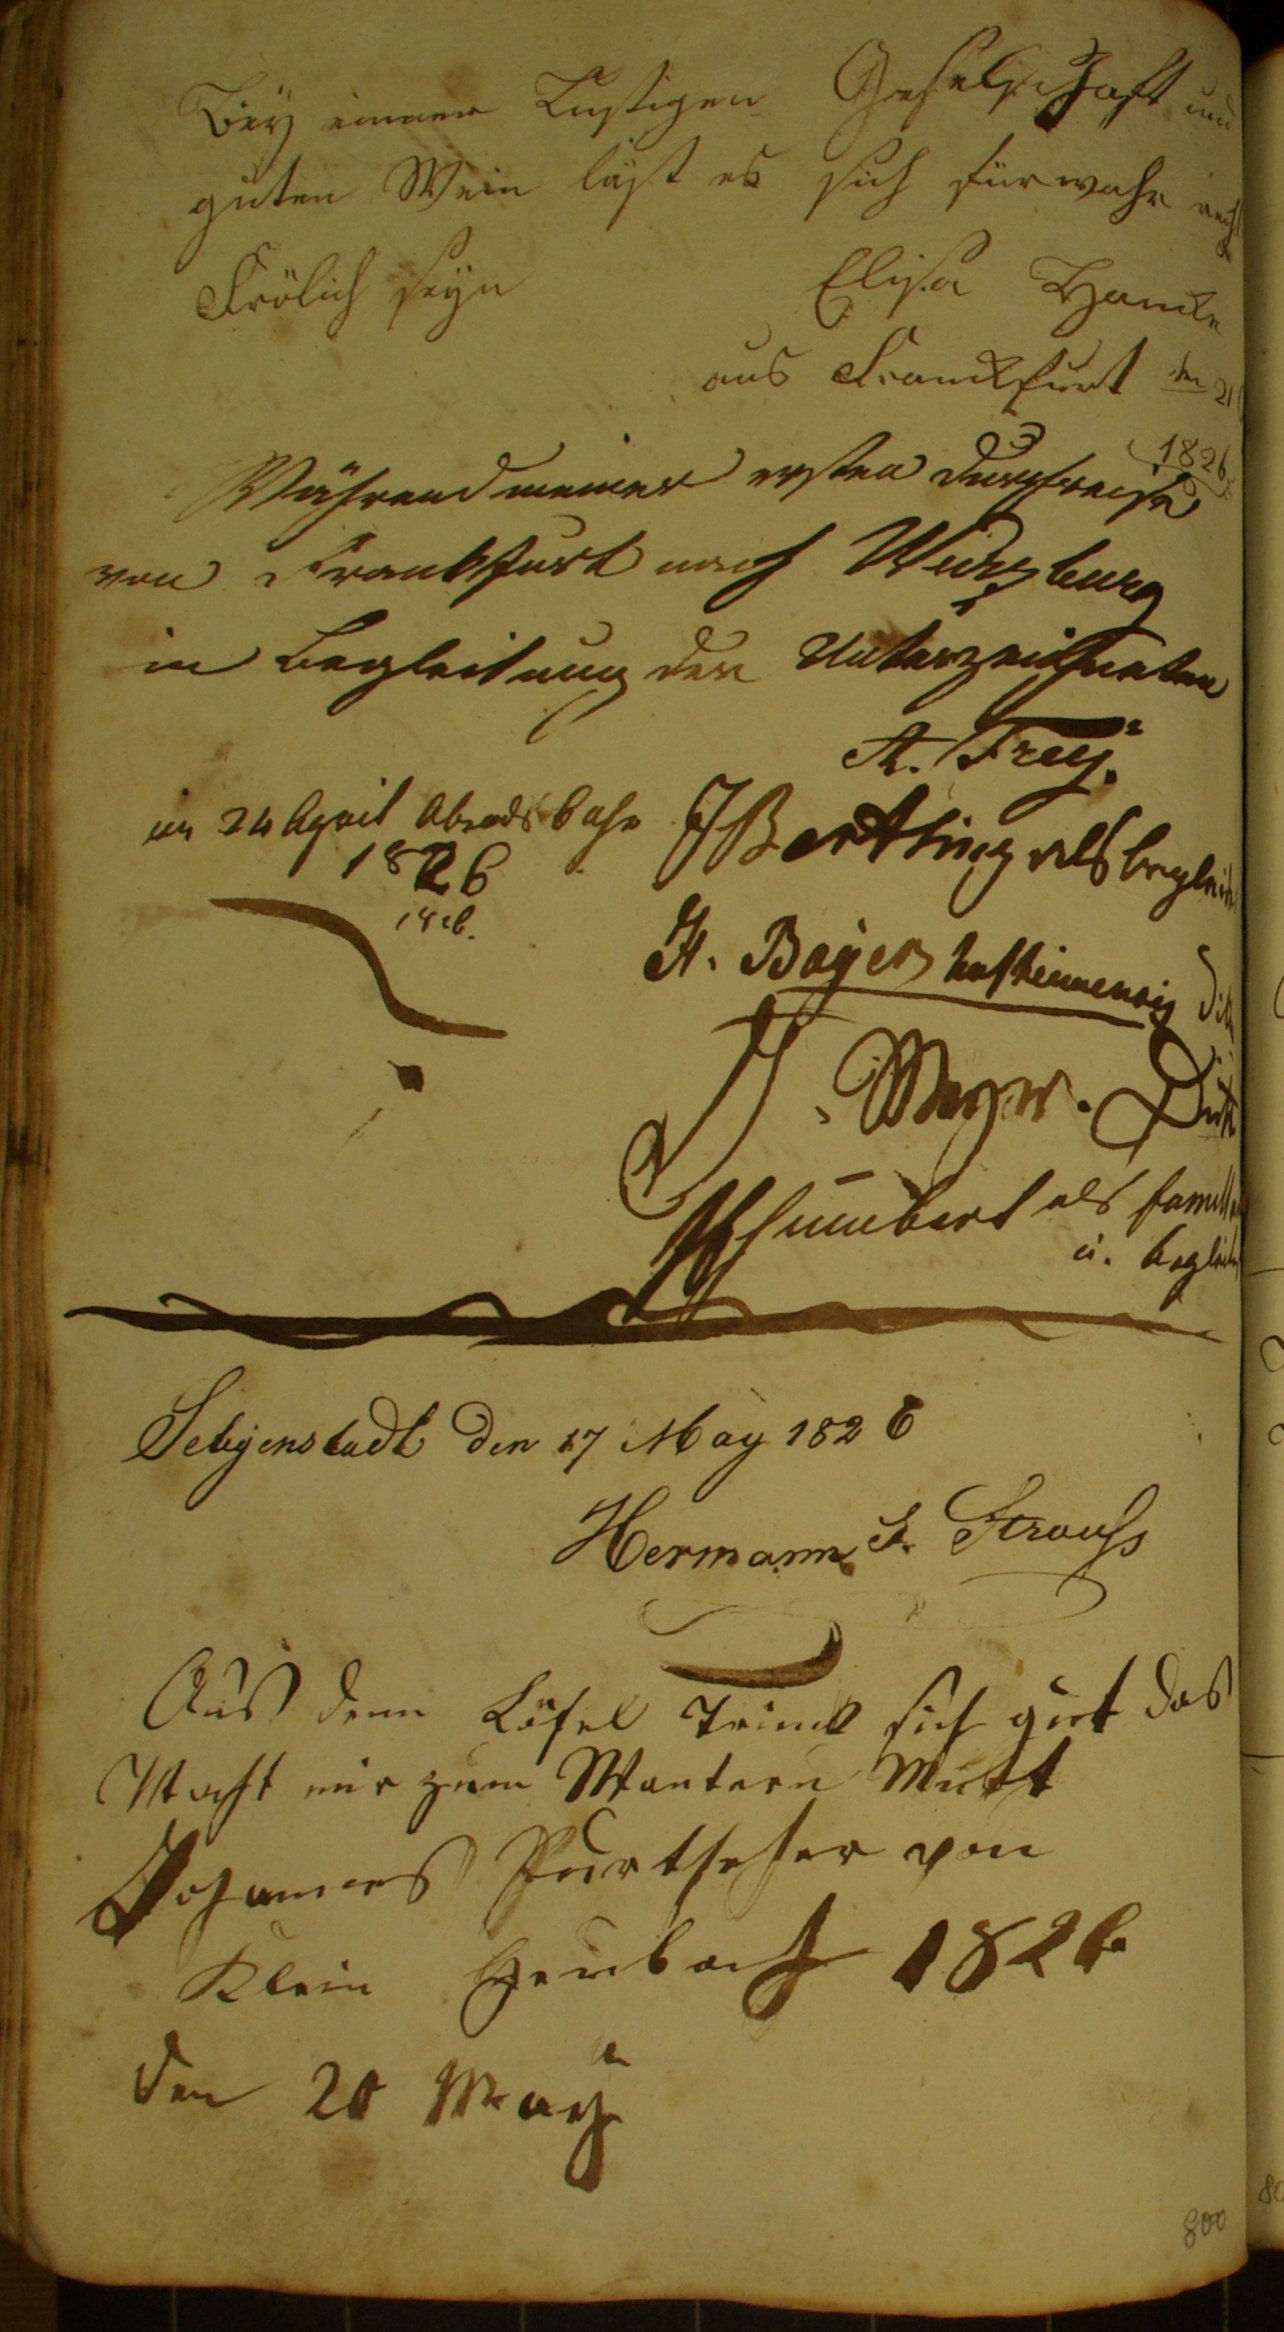 Bey einner Lustigen Geselschaft und
guten Wein läst es sich fürwahr recht
Frölich seyn Elisa
aus Franckfurt den 21
1826
Während meiner ersten Durchreise
von Frankfurt nach Würzburg
in Begleitung der Unterzeichneten
A. Frey.
im 24 April Abends
1826
JBerthing als begleiter
H. Bayer
J. Meyer.
als
u. begleiter
Seligenstadt den 17 May 1826
Hermann S. Strauss
Aus dem Löfel Trinck sich gut das
Macht mir zum Wantern Mutt
Johannes von
Klein Heubach 1826
den 20 May
800